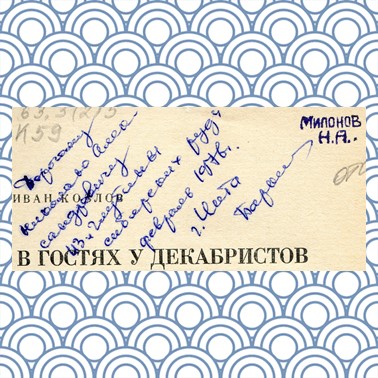 63,3(2)5
К59
МИЛОНОВ
Н.А.
Дорогому
Николаю Алек-
сандровичу
из "глубины
сибирских руд"
февраль 1978г.
г. Чита
ИВАН КОЗЛОВ
В ГОСТЯХ У ДЕКАБРИСТОВ